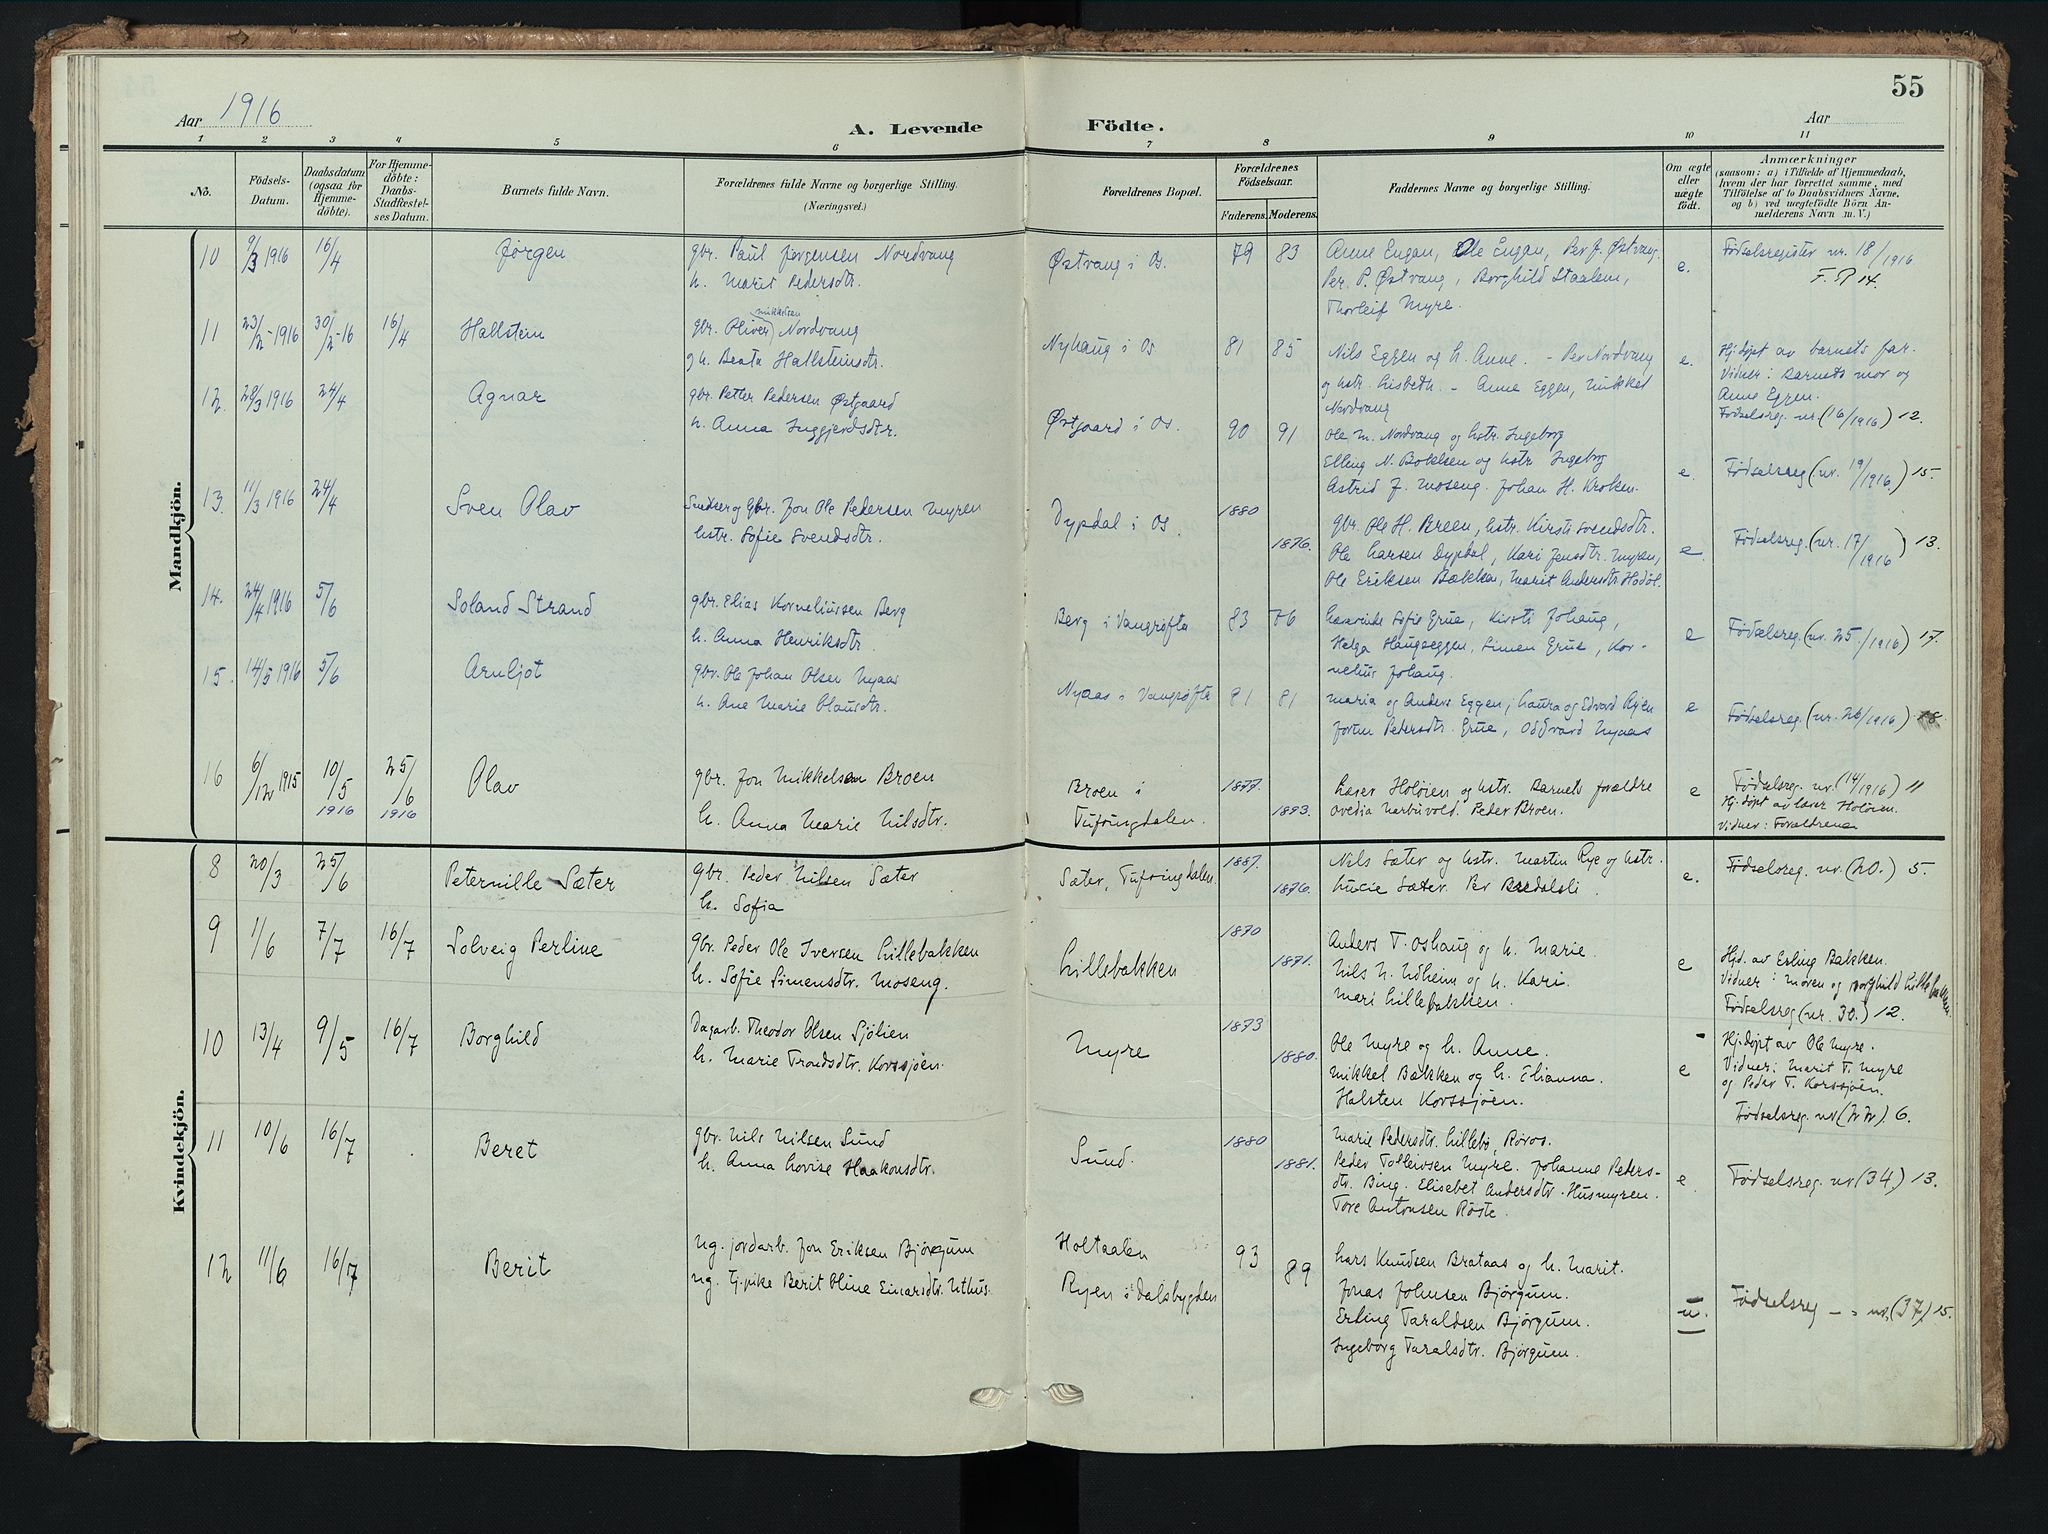 55
Aar 1916
A. Levende Födte.
Aar
1 2 3 4 5 6 7 8 9 10 11
No.
Födsels-Datum.
Daabsdatum (ogsaa for Hjemmedöbte).
For Hjemmedöbte: Daabs-Stadfæstelses Datum.
Barnets fulde Navn.
Forældrenes fulde Navne og borgerlige Stilling.
(Næringsvei.)
Forældrenes Bopæl.
Forældrenes Födselsaar.
Faderens. Moderens.
Faddernes Navne og borgerlige Stilling.
Om ægte eller uægte födt.
Anmærkninger
(saasom: a) i Tilfælde af Hjemmedaab, hvem der har forrettet samme, med Tilföielse af to Daabsvidners Navne. og b) ved uægtefödte Börn Anmelderens Navn m. V.)
Mandkjön.
10 9/3 1916 16/4 Jørgen
gbr. Paul Jørgensen Nordvang
h. Marit Pedersdtr.
Østvang i Os. 79 83
Anne Engan, Ole Engan, Per J. Østvang.
Per. P. Østvang, Borghild Staalem,
Thorleif Myre.
e.
Fødselsregister nr. 18/1916.
14.
11 23/2-1916 30/2-16 16/4 Hallstein
gbr. Oliver Mikkelsen Nordvang
og h. Beata Hallsteinsdtr.
Nyhaug i Os 81 85
Nils Eggen og h. Anne. - Per Nordvang
og hstr. Lisbeth. - Anne Eggen, Mikkel
Nordvang
e.
Hj.døpt av barnets far.
Vidner: Barnets mor og
Anne Eggen.
Fødselsreg. nr. (16/1916) 12.
12. 28/3 1916 24/4 Agnar
gbr. Petter Pedersen Østgaard
h. Anna Inggjerdsdtr.
Østgaard i Os. 90 91
Ole M. Nordvang og hstr. Ingeborg
Elling N. Bakken og hstr Ingeborg
Astrid J. Moseng. Johan H. Kroken.
e.
Fødselsreg (nr. 19/1916.) 15.
13. 11/3 1916 24/4 Sven Olav
gbr. Jon Ole Pedersen Myren
hstr. Sofie Svendsdtr.
Dypdal i Os. 1880 1876.
gbr. Ole H. Breen, hstr. Kirsti Svendsdtr.
Ole Larsen Dypdal, Kari Jensdtr. Myren,
Ole Eriksen Bækken, Marit Andersdtr Hodøl.
e
Fødselsreg. (nr. 17/1916) 13.
14. 24/4 1916 5/6 Soland Strand
gbr. Elias Korneliussen Berg
h. Anna Henriksdtr.
Berg i Vangrøfta 83 76
Lærerinde Sofie Grue, Kirsti Johaug,
Helga Haugseggen, Simen Grue, Kor-
nelius Johaug.
e
Fødselsreg. (nr. 25./1916) 17.
15. 14/5 1916 5/6 Arnljot
gbr. Ole Johan Olsen Nyaas
h. Ane Marie Olausdtr.
Nyaas i Vangrøfta 81 81
Maria og Anders Eggen, Laura og Edvard Ryen
Jorun Pedersdtr. Grue, Oddvard Nyaas
e
Fødselsreg. (nr. 26/1916) 18
16 6/12 1915 10/5 1916 25/6 1916 Olav
gbr. Jon Mikkelsen Broen
h. Anna Marie Nilsdtr.
Broen i
Tufsingdalen. 1877. 1893.
Lærer Holøien og hstr. Barnets forældre
Ovedia Narbuvold. Peder Broen.
e
Fødselsreg. nr. (14/1916) 11
Hj. døpt av lærer Holøien.
Vidner: Forældrene
Kvindekjön.
8 20/3 25/6 Peternille Sæter
gbr. Peder Nilsen Sæter
h. Sofia
Sæter, Tufsingdalen. 1887. 1876.
Nils Sæter og hstr. Martin Rye og hstr.
Lucie Sæter. Per Bredalsli.
e.
Fødselsreg. nr. (20.) 5.
9 1/6 7/7 16/7 Solveig Perline
gbr. Peder Ole Iversen Lillebakken
h. Sofie Simensdtr. Moseng.
Lillebakken 1870 1871.
Anders T. Oshaug og h. Marie.
Nils N. Udheim og h. Kari.
Mari Lillebakken.
e
Hjd. av Erling Bakken.
Vidner: Moren og Borghild Lillebakken.
Fødselsreg (nr. 30.) 12.
10 13/4 9/5 16/7 Borghild
Dagarb. Theodor Olsen Sjølien
h. Marie Trondsdtr. Korssjøen.
Myre 1873 1880.
Ole Myre og h. Anne.
Mikkel Bækken og h. Elianna.
Halsten Korssjøen.
e
Hj.døpt av Ole Myre.
Vidner: Marit T. Myre
og Peder T. Korssjøen.
Fødselsreg. nr (22). 6.
11 10/6 16/7 Beret
gbr. Nils Nilsen Sund
h. Anna Lovise Haakonsdtr.
Sund. 1880 1881.
Marie Pedersdtr. Lillebo, Røros.
Peder Tolleivsen Myre. Johanne Peders-
dtr. Bing. Elisebet Andersdtr. Husmyren.
Tore Antonsen Røste.
e.
Fødselsreg. nr (34.) 13.
12 11/6 16/7 Berit
Ug. jordarb. Jon Eriksen Bjørgum
ug. tj.pike Berit Oline Einarsdtr. Uthus.
Holtaalen
Ryen i Dalsbygden 93 89
Lars Knudsen Brataas og h. Marit.
Jonas Johnsen Bjørgum.
Erling Taraldsen Bjørgum.
Ingeborg Taralsdtr. Bjørgum.
u.
Fødselsreg - " nr. (37) 15.